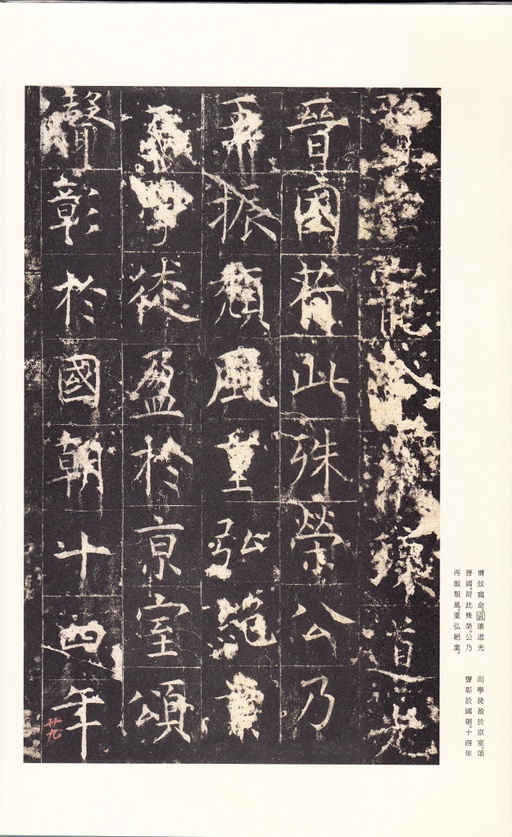 寵道光
晉國荷此殊榮公乃
再振頹風重弘絕業
而學徒盈於京室頌
聲彰於國朝十四年
廿九
膺玆寵命績道光
晉國。荷此殊榮。公乃
再振頹風。重弘絕業。
而學徒盈於京室。頌
聲彰於國朝。十四年